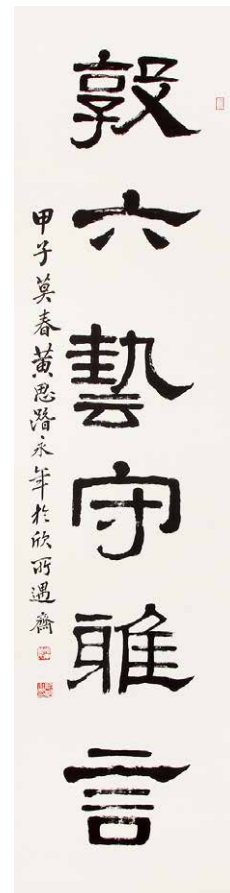 敦六藝守雅言
甲子莫春黃思潛永年於欣所遇齋